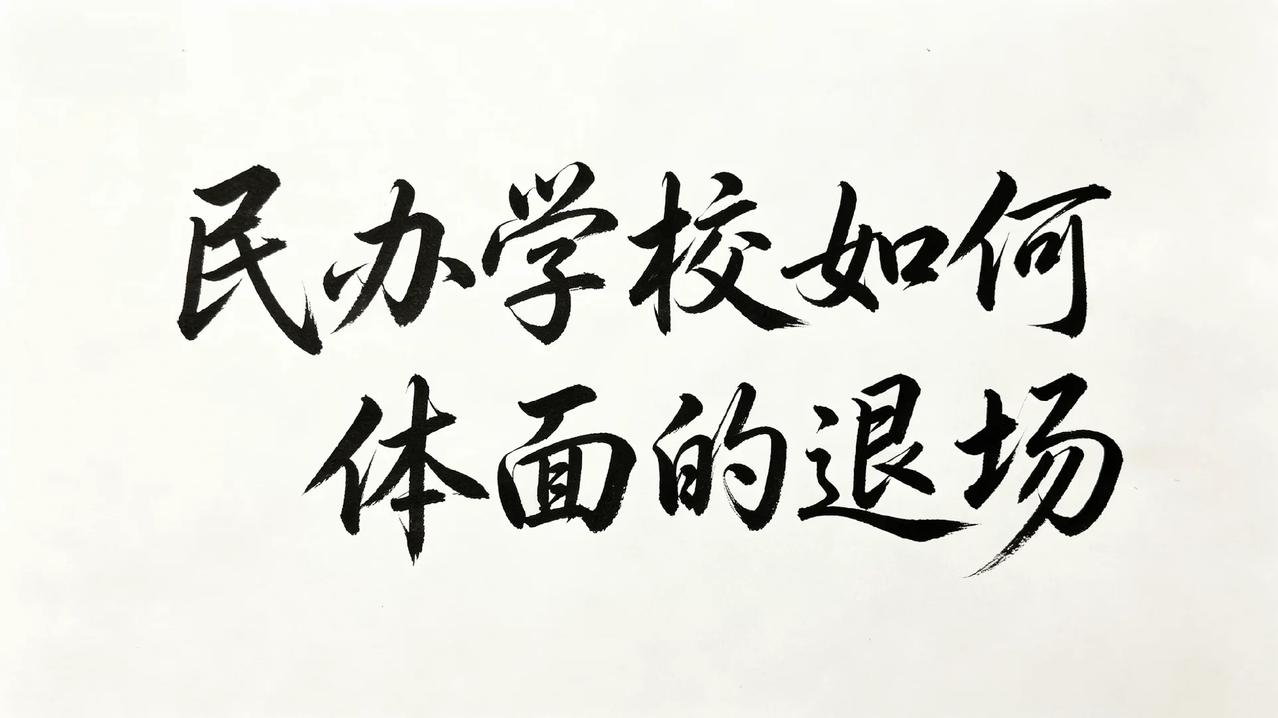 民办学校如何
体面的退场